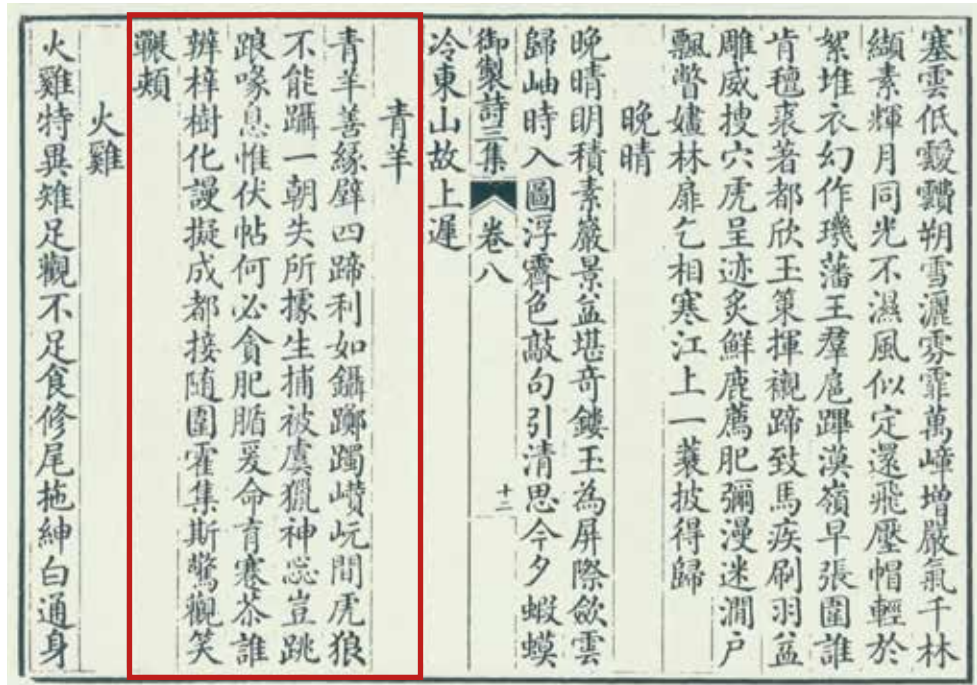 塞雲低靉靆朔雪灑雰霏萬嶂增嚴氣千林
纈素輝月同光不濕風似定還飛壓帽輕於
絮堆衣幻作璣藩王羣扈蹕漠嶺早張圍誰
肯氊裘著都欣玉策揮襯蹄致馬疾刷羽益
雕威搜穴虎呈迹炙鮮鹿薦肥彌漫迷澗户
飄瞥嫿林扉乞相寒江上一蓑披得歸
晚晴
晚晴明積素巖景益堪奇鏤玉為屏際斂雲
歸岫時入圖浮霽色敲句引清思今夕蝦蟆
御製詩三集
卷八
十二
冷東山故上遲
青羊
青羊善緣壁四蹄利如鑷躑躅巑岏間虎狼
不能躡一朝失所據生捕被虞獵神惢豈跳
踉喙息惟伏帖何必貪肥腯爰命育寒苶誰
辨梓樹化謾擬成都接随圍霍集斯驚觀笑
冁頰
火雞
火雞特異雉足觀不足食修尾拖紳白通身